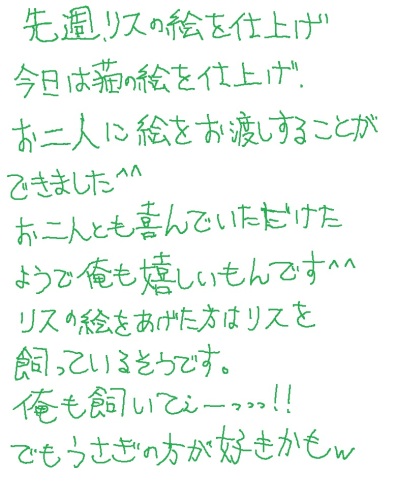 先週、リスの絵を仕上げ
今日は猫の絵を仕上げ.
お二人に絵をお渡しすることが
できました^^
お二人とも喜んでいただけた
ようで俺も嬉しいもんです^^
リスの絵をあげた方はリスを
飼っているそうです。
俺も飼いてぇーっっっ!!
でもうさぎの方が好きかもw